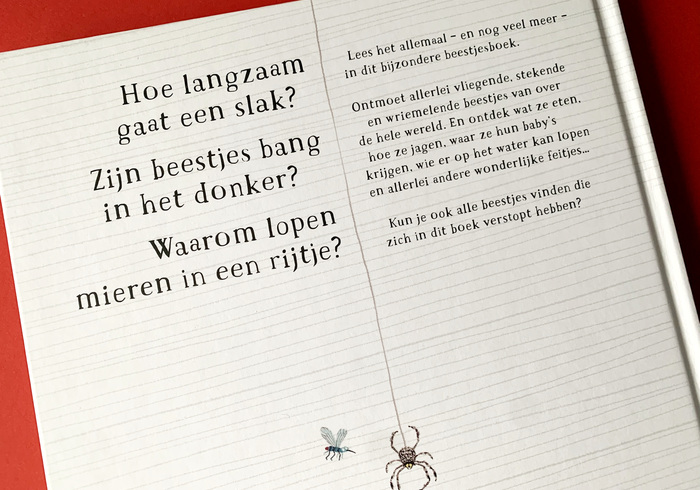 Hoe langzaam
gaat een slak?
Zijn beestjes bang
in het donker?
Waarom lopen
mieren in een rijtje?
Lees het allemaal – en nog veel meer –
in dit bijzondere beestjesboek.
Ontmoet allerlei vliegende, stekende
en wriemelende beestjes van over
de hele wereld. En ontdek wat ze eten,
hoe ze jagen, waar ze hun baby's
krijgen, wie er op het water kan lopen
en allerlei andere wonderlijke feitjes...
Kun je ook alle beestjes vinden die
zich in dit boek verstopt hebben?